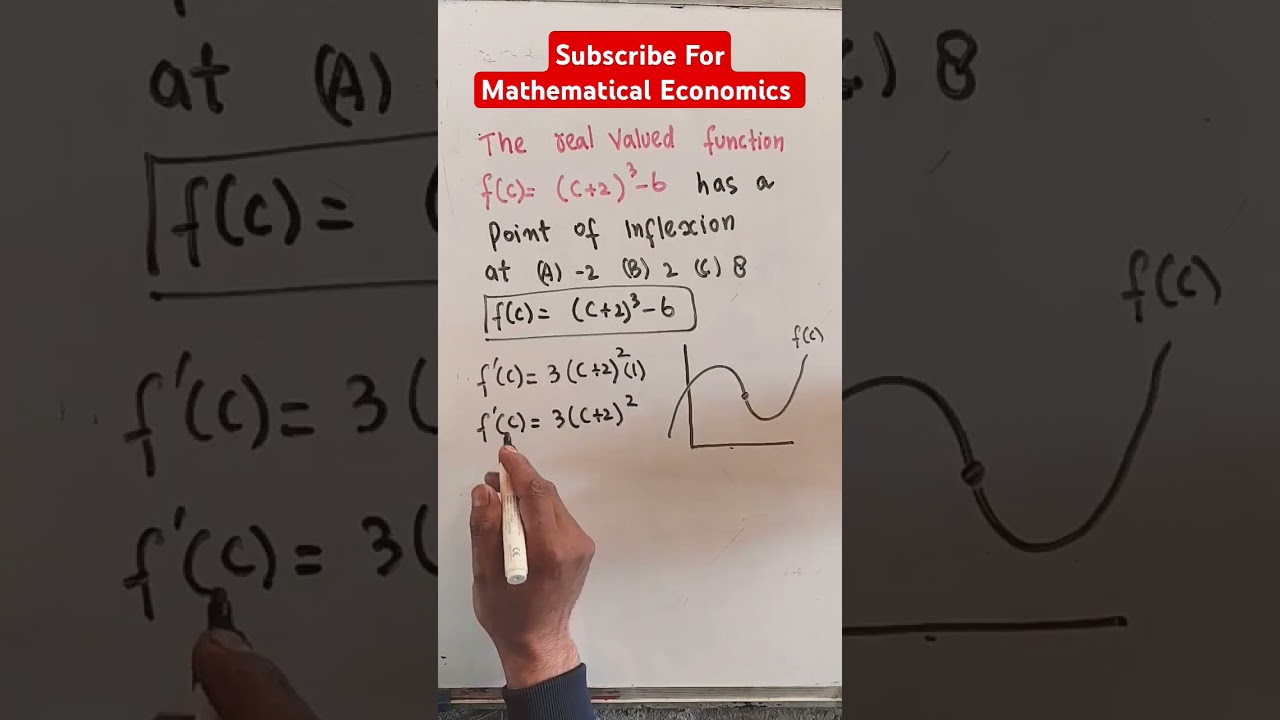 Subscribe For
Mathematical Economics
The real valued function
f(c)= (c+2)³-6 has a
Point of Inflexion
at (A) -2 (B) 2 (C) 8
f(c)= (c+2)³-6
f'(c)= 3(c+2)²(1)
f'(c)= 3(c+2)²
f(c)
at (A)
) 8
f(c)=
f'(c)= 3
f'(c)= 3(
f(c)